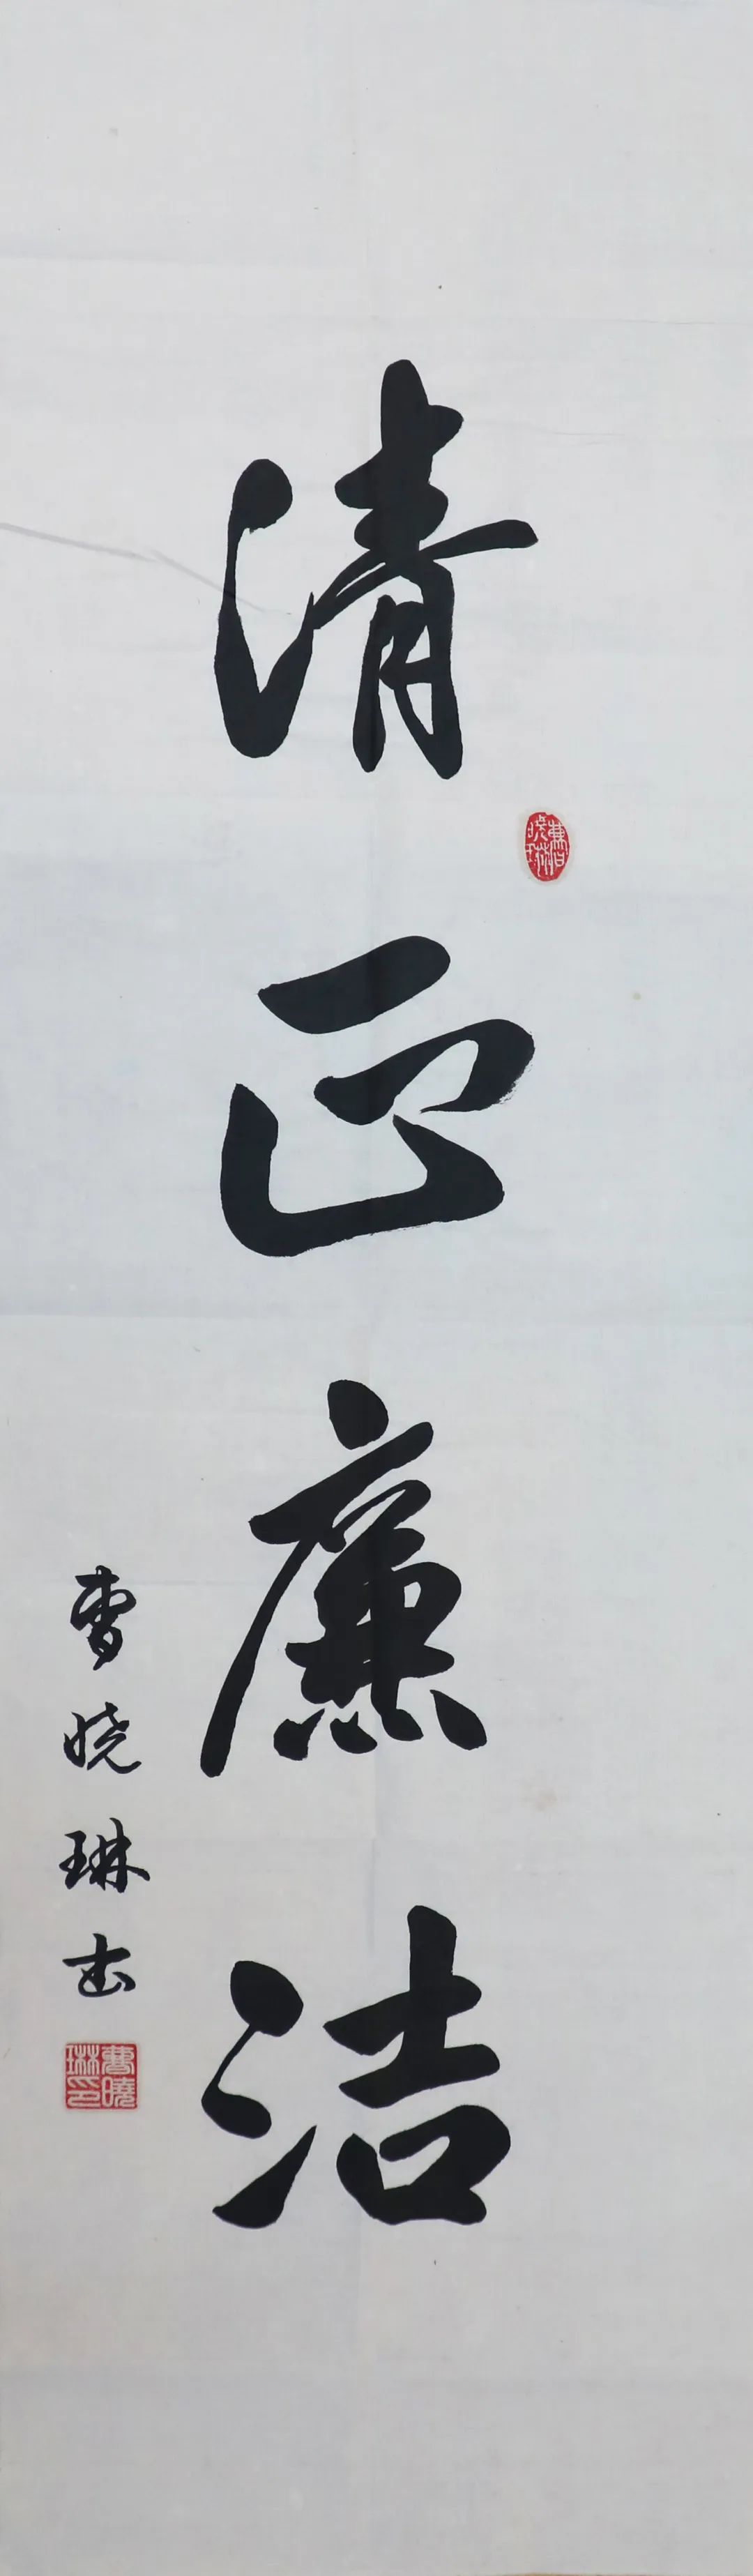 清正廉洁
曹晓琳书
曹曉琳印